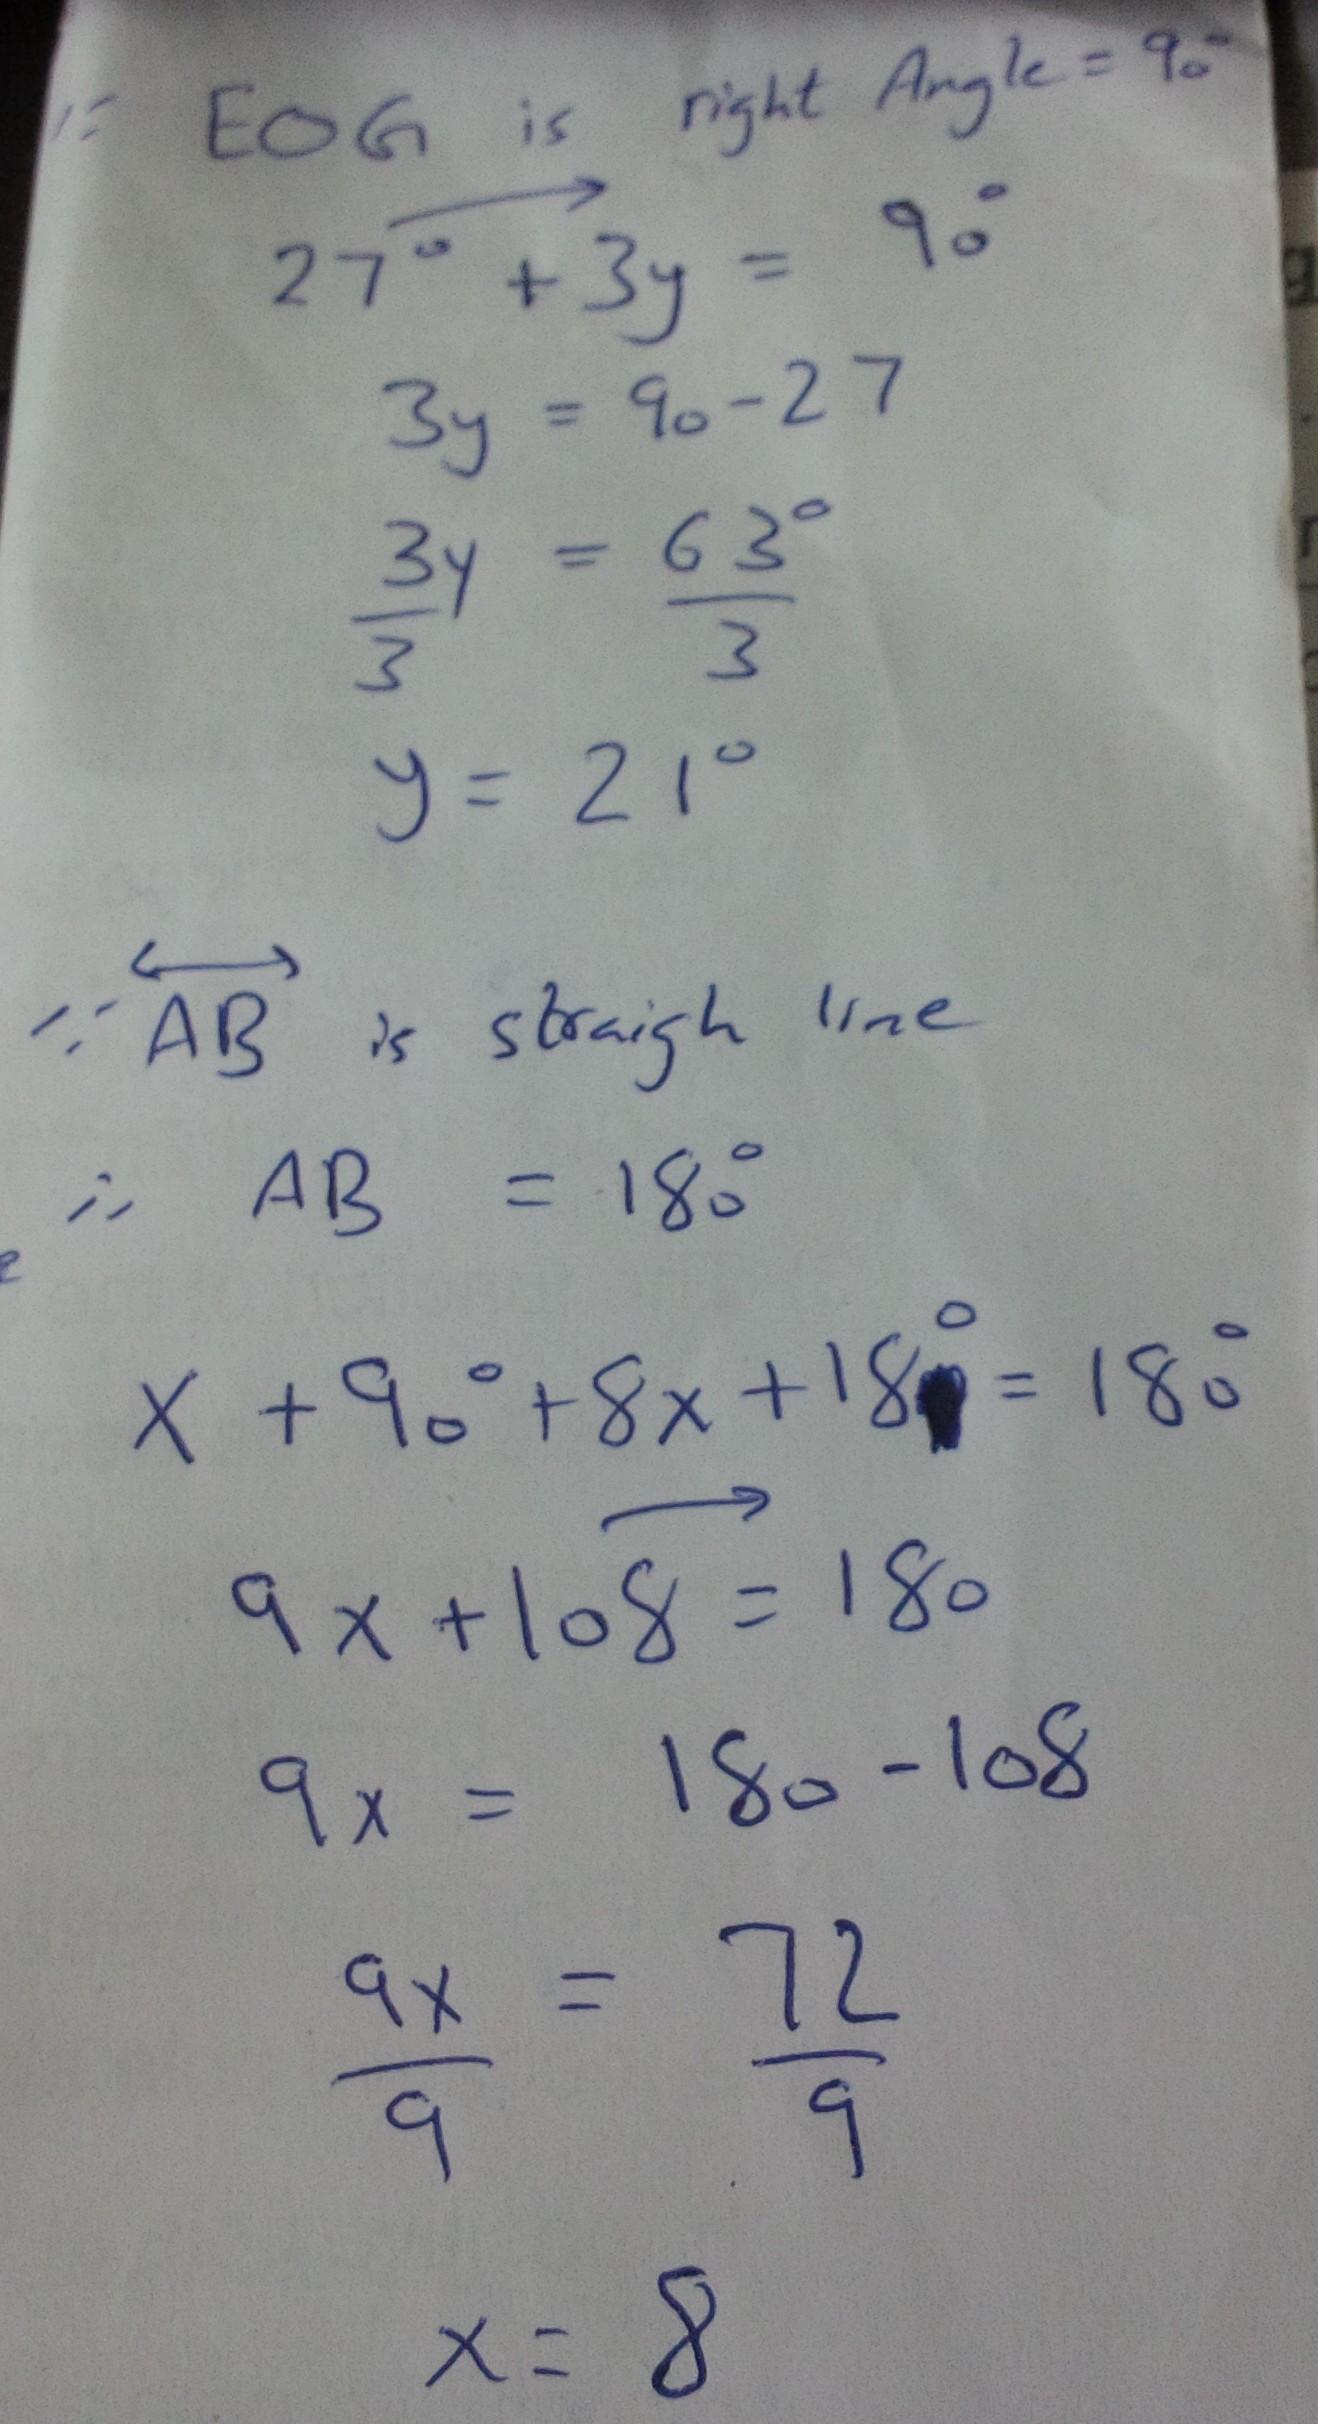 ∵ EOG is right Angle = 90°
27° + 3y = 90°
3y = 90 - 27
3y/3 = 63°/3
y = 21°
∵ AB is straigh line
∴ AB = 180°
x + 90° + 8x + 18° = 180°
9x + 108 = 180
9x = 180 - 108
9x/9 = 72/9
x = 8